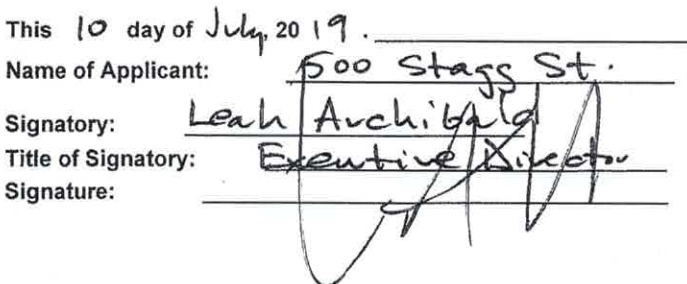 This 10 day of July, 2019.
Name of Applicant: 500 Stagg St.
Signatory: Leah Archibald
Title of Signatory: Executive Director
Signature: